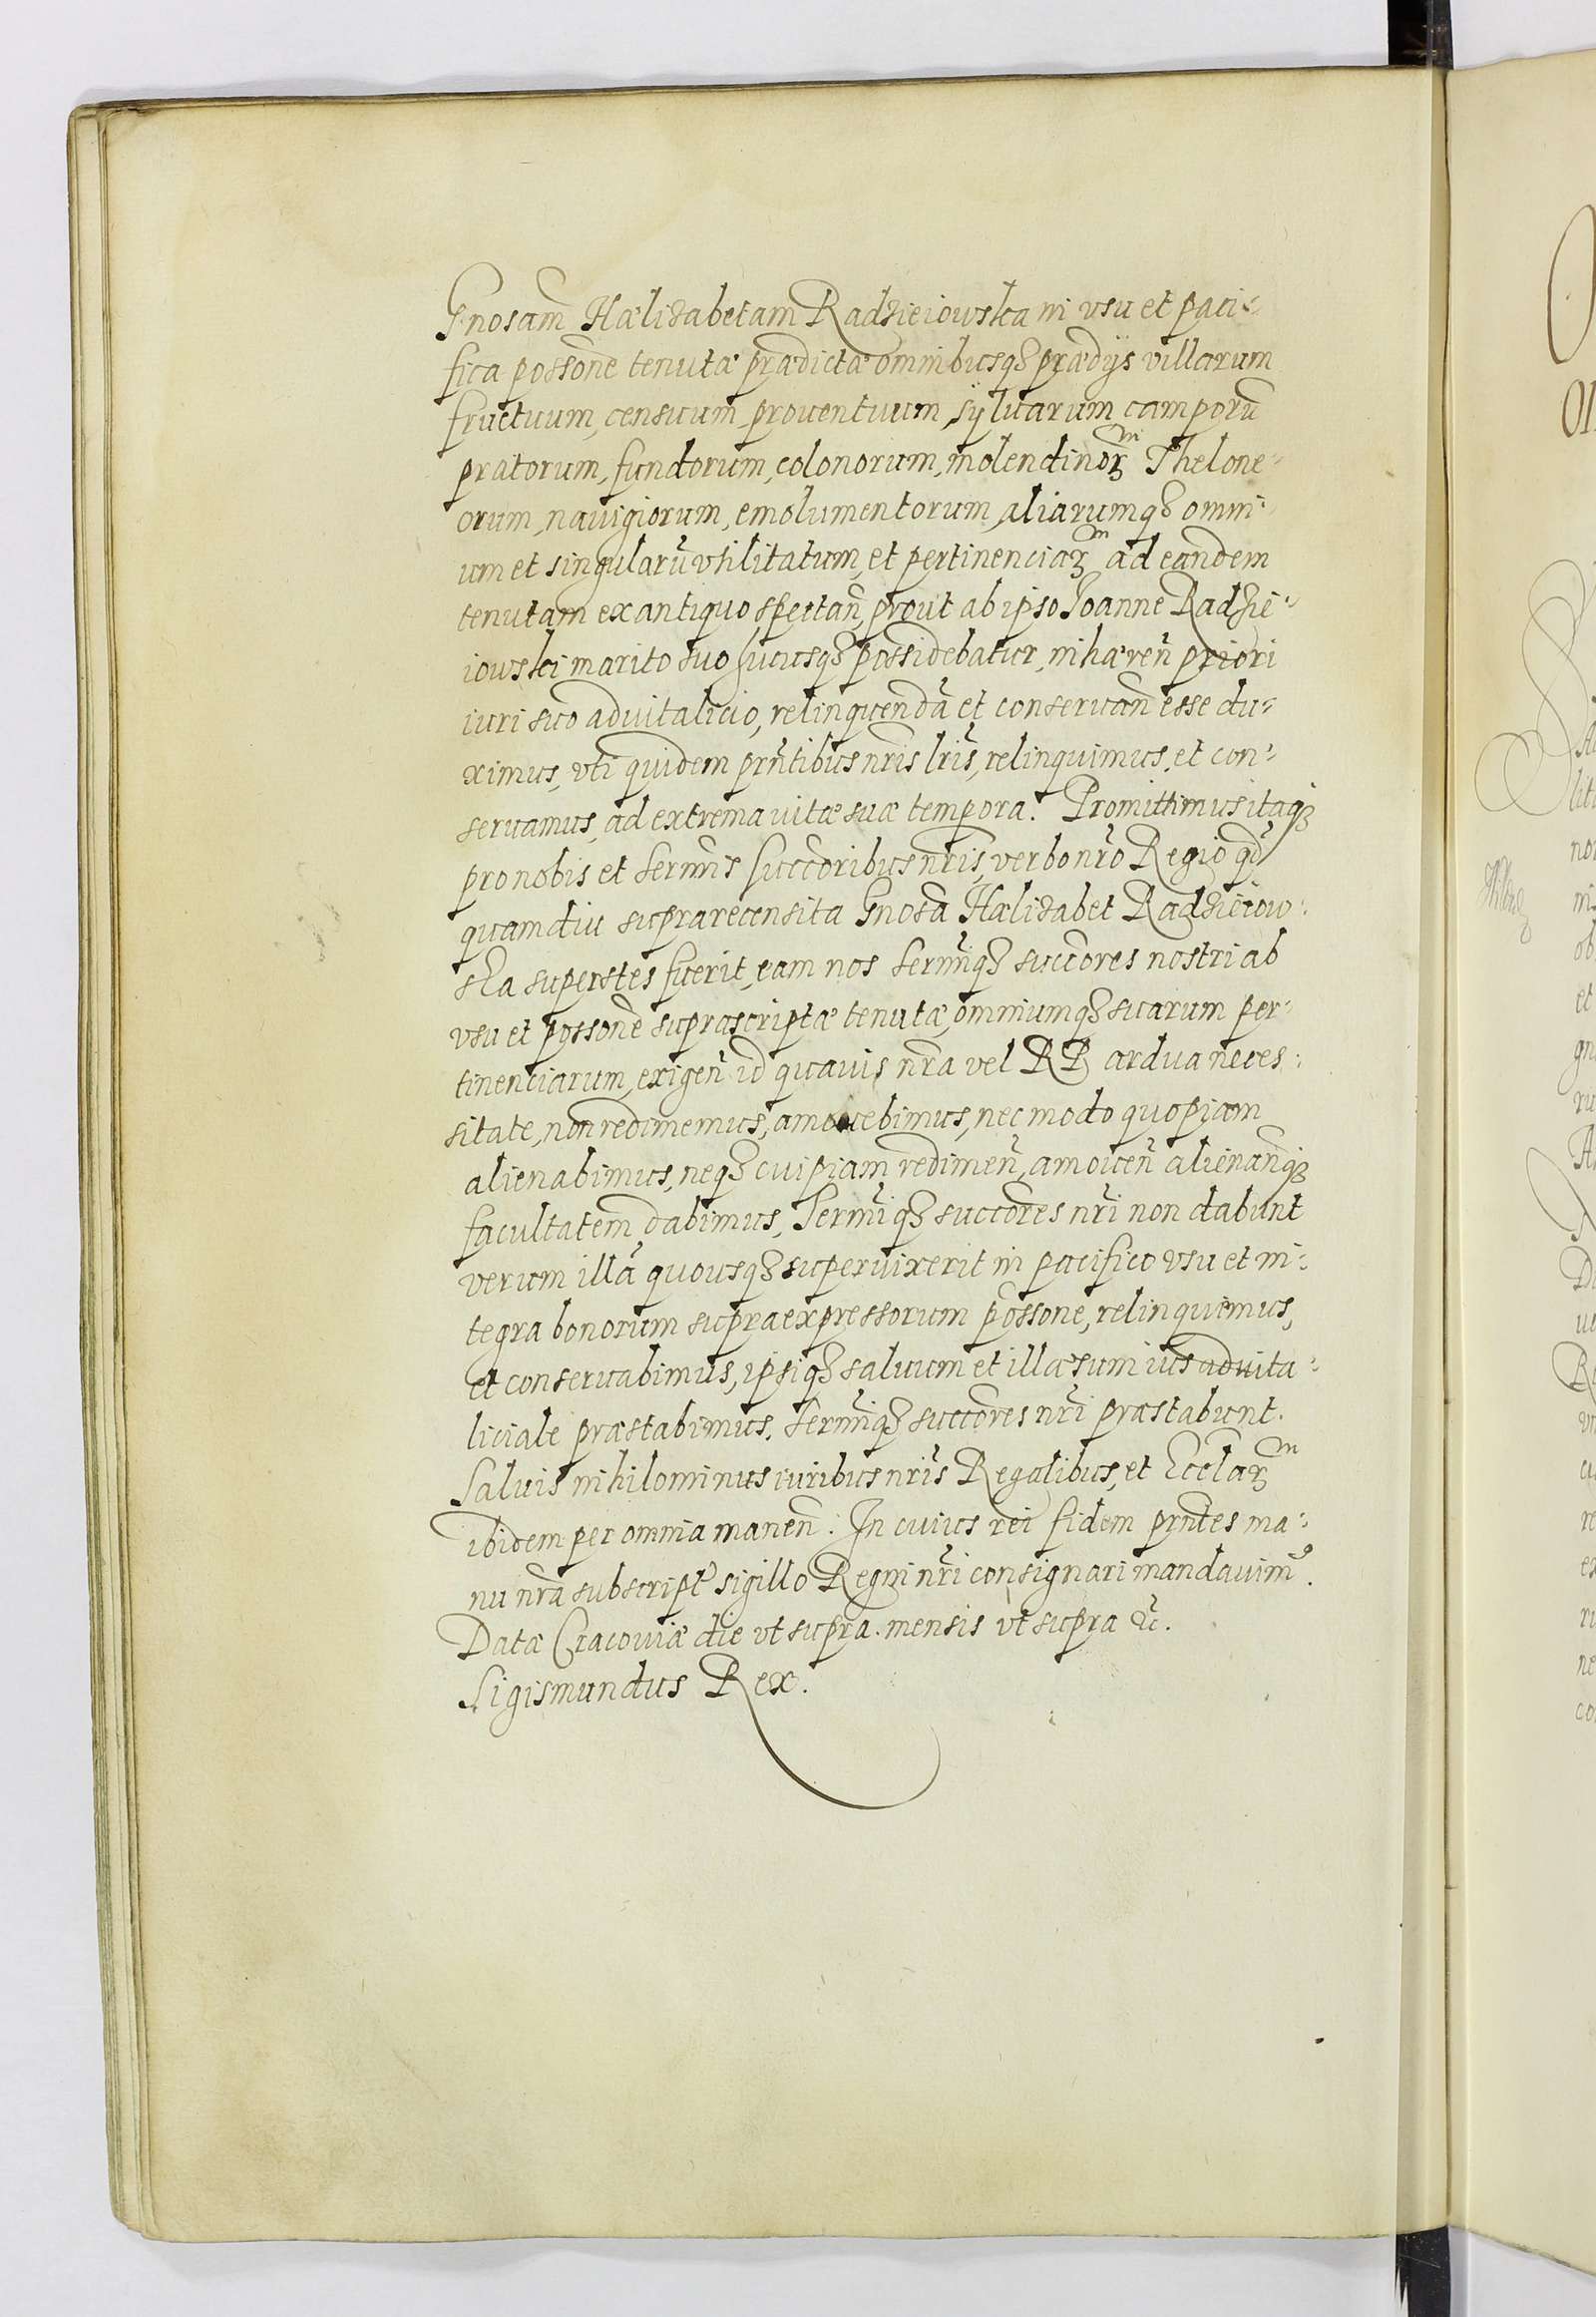 Gnosam̃ Hælizabetam Radzieiowska in vsu et paci-
fica possoñe tenutæ prædictæ omnibusq₃ prædijs villarum
fructuum, censuum, prouentuum, syluarum, camporũ
pratorum, fundorum, colonorum, molendinorꝫᵐ Thelone-
orum, nauigiorum, emolumentorum, aliarumq₃ omni-
um et singularũ vtilitatum, et pertinenciarꝫᵐ ad eandem
tenutam ex antiquo spectañ, prout ab ipso Joanne Radzie-
iowski marito suo hucusq₃ possidebatur, inhæreñ priori
iuri suo aduitalicio, relinquendã et conseruañ esse du-
ximus, vti quidem prñtibus nr̃is lr̃is, relinquimus, et con-
seruamus, ad extrema uitæ suæ tempora. Promittimus itaq₃
pro nobis et Serm̃is succc̃oribus nr̃is, verbo nr̃o Regio qđ
quamdiu suprarecensita Gnosã Hælizabet Radzieiow-
ska superstes fuerit, eam nos Serm̃iq₃ succc̃ores nostri ab
vsu et possoñe suprascriptæ tenutæ, omniumq₃ suarum per-
tinenciarum, exigeñ id quauis nr̃a vel RP ardua neces-
sitate, non redimemus, amouebimus, nec modo quopiam
alienabimus, neq₃ cuipiam redimeñ, amoueñ alienañq₃
facultatem dabimus, Serm̃iq₃ succc̃ores nr̃i non dabunt
verum illã quousq₃ superuixerit in pacifico vsu et in-
tegra bonorum supraexpressorum possoñe, relinquemus,
et conseruabimus, ipsiq₃ saluum et illæsum ius aduita-
liciale præstabimus, Serm̃iq₃ succc̃ores nr̃i præstabunt.
Saluis nihilominus iuribus nr̃is Regalibus, et Eccl̃arꝫᵐ
ibidem per omnia maneñ. In cuius rei fidem prñtes ma-
nu nr̃a subscript' sigillo Regni nr̃i consignari mandauimꝰ.
Datæ Cracouiæ die vt supra. mensis vt supra &c̃.
Sigismundus Rex.